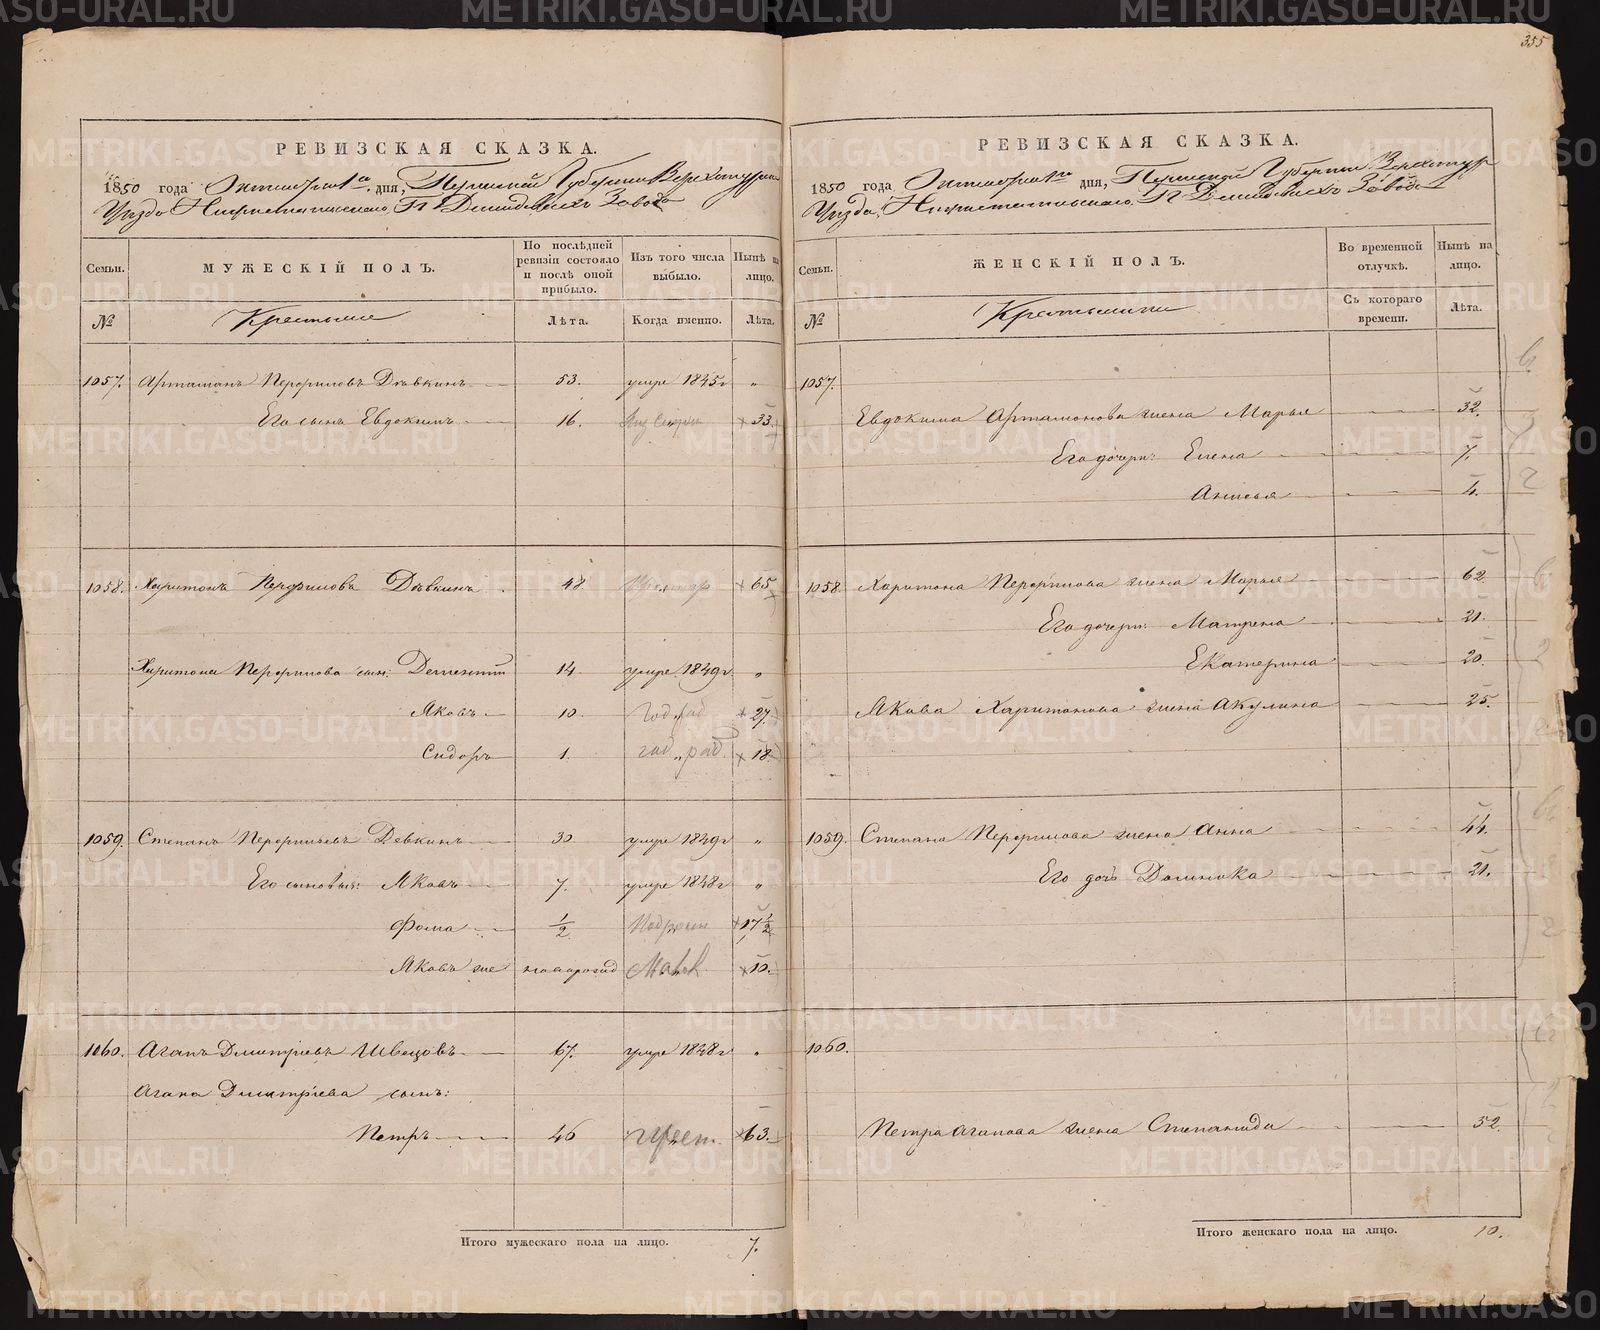 355
РЕВИЗСКАЯ СКАЗКА.
1850 года Октября 1го дня, Пермской Губернии Верхотурскаго
Уезда, Нижнетагильскаго Гг. Демидовыхъ Завода
Семьи.
МУЖЕСКІЙ ПОЛЪ.
По послѣдней ревизіи состояло и послѣ оной прибыло.
Изъ того числа выбыло.
Нынѣ на лицо.
№
Крестьяне
Лѣта.
Когда именно.
Лѣта.
1057. Артамонъ Перфиловъ Дѣвкинъ 53. умре 1845г „
Его сынъ Евдокимъ 16. 33.
1058. Харитонъ Перфиловъ Дѣвкинъ 48. 65
Харитона Перфилова сын: Дементій 14 умре 1849г „
Яковъ 10. 27.
Сидоръ 1. 18.
1059. Степанъ Перфильевъ Девкинъ 30 умре 1849г „
Его сыновья: Яковъ 7. умре 1848г „
Фома 1/2 17 1/2
Яковъ же новорожд 10.
1060. Агапъ Дмитріевъ Швецовъ 67. умре 1848г „
Агапа Дмитріева сынъ:
Петръ 46 63.
Итого мужескаго пола на лицо. 7.
РЕВИЗСКАЯ СКАЗКА.
1850 года Октября 1го дня, Пермской Губернии Верхотур
Уезда, Нижнетагильскаго Гг. Демидовыхъ Завода
Семьи.
ЖЕНСКІЙ ПОЛЪ.
Во временной отлучкѣ.
Нынѣ на лицо.
№
Крестьянки
Съ котораго времени.
Лѣта.
1057.
Евдокима Артамонова жена Марья 32.
Его дочери: Елена 7.
Анисья 4.
1058. Харитона Перфилова жена Марья 62.
Его дочери: Матрена 21.
Екатерина 20.
Якова Харитонова жена Акулина 25.
1059. Степана Перфилова жена Анна 44.
Его дочь Домника 21.
1060.
Петра Агапова жена Степанида 52.
Итого женскаго пола на лицо. 10.
METRIKI.GASO-URAL.RU